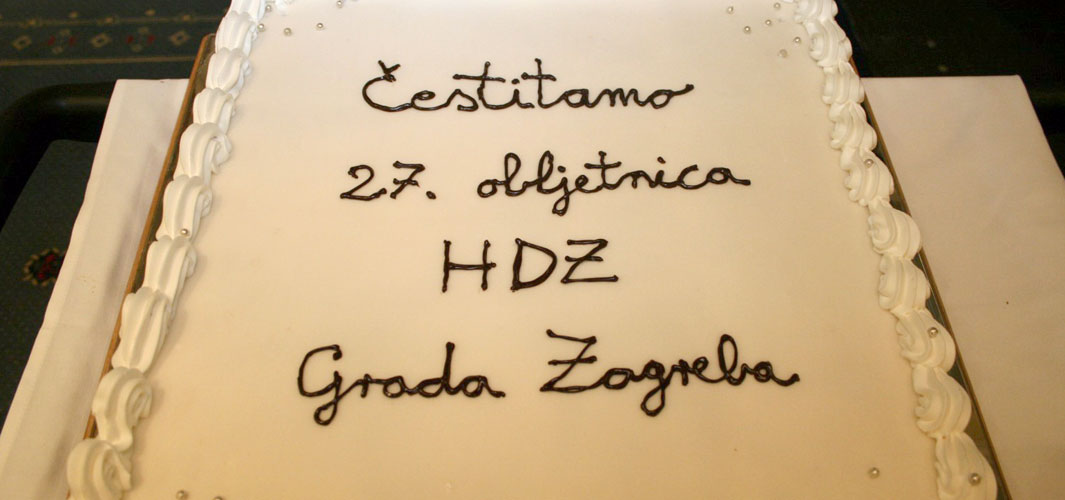 Čestitamo
27. obljetnica
HDZ
Grada Zagreba